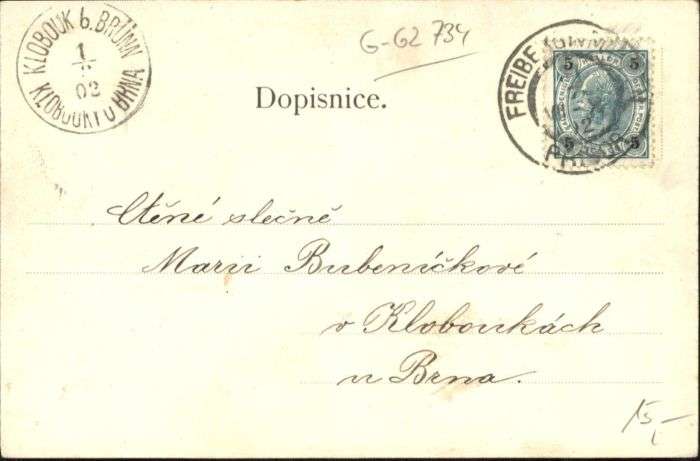 KLOBOUK b. BRÜNN
1
02
KLOBOUKY U BRNA
G-G2 734
Dopisnice.
5 5
5 5
Ctěné slečně
Marii Bubeníčkové
v Kloboukách
u Brna.
15,-